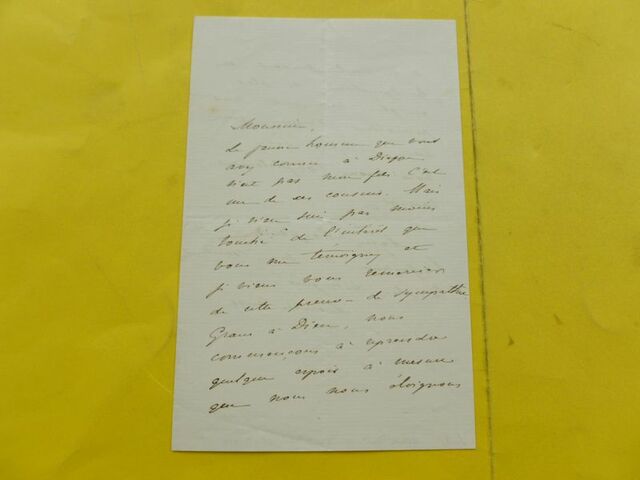 Monsieur,
Le jeune homme que vous
avez connu à Dieppe
n'est pas mon fils c'est
un de ses cousins. Mais
je n'en suis pas moins
touché de l'intérêt que
vous me témoignez et
je viens vous remercier
de cette preuve de sympathie
Grâce à Dieu, nous
commençons à reprendre
quelque espoir à mesure
que nous nous éloignons